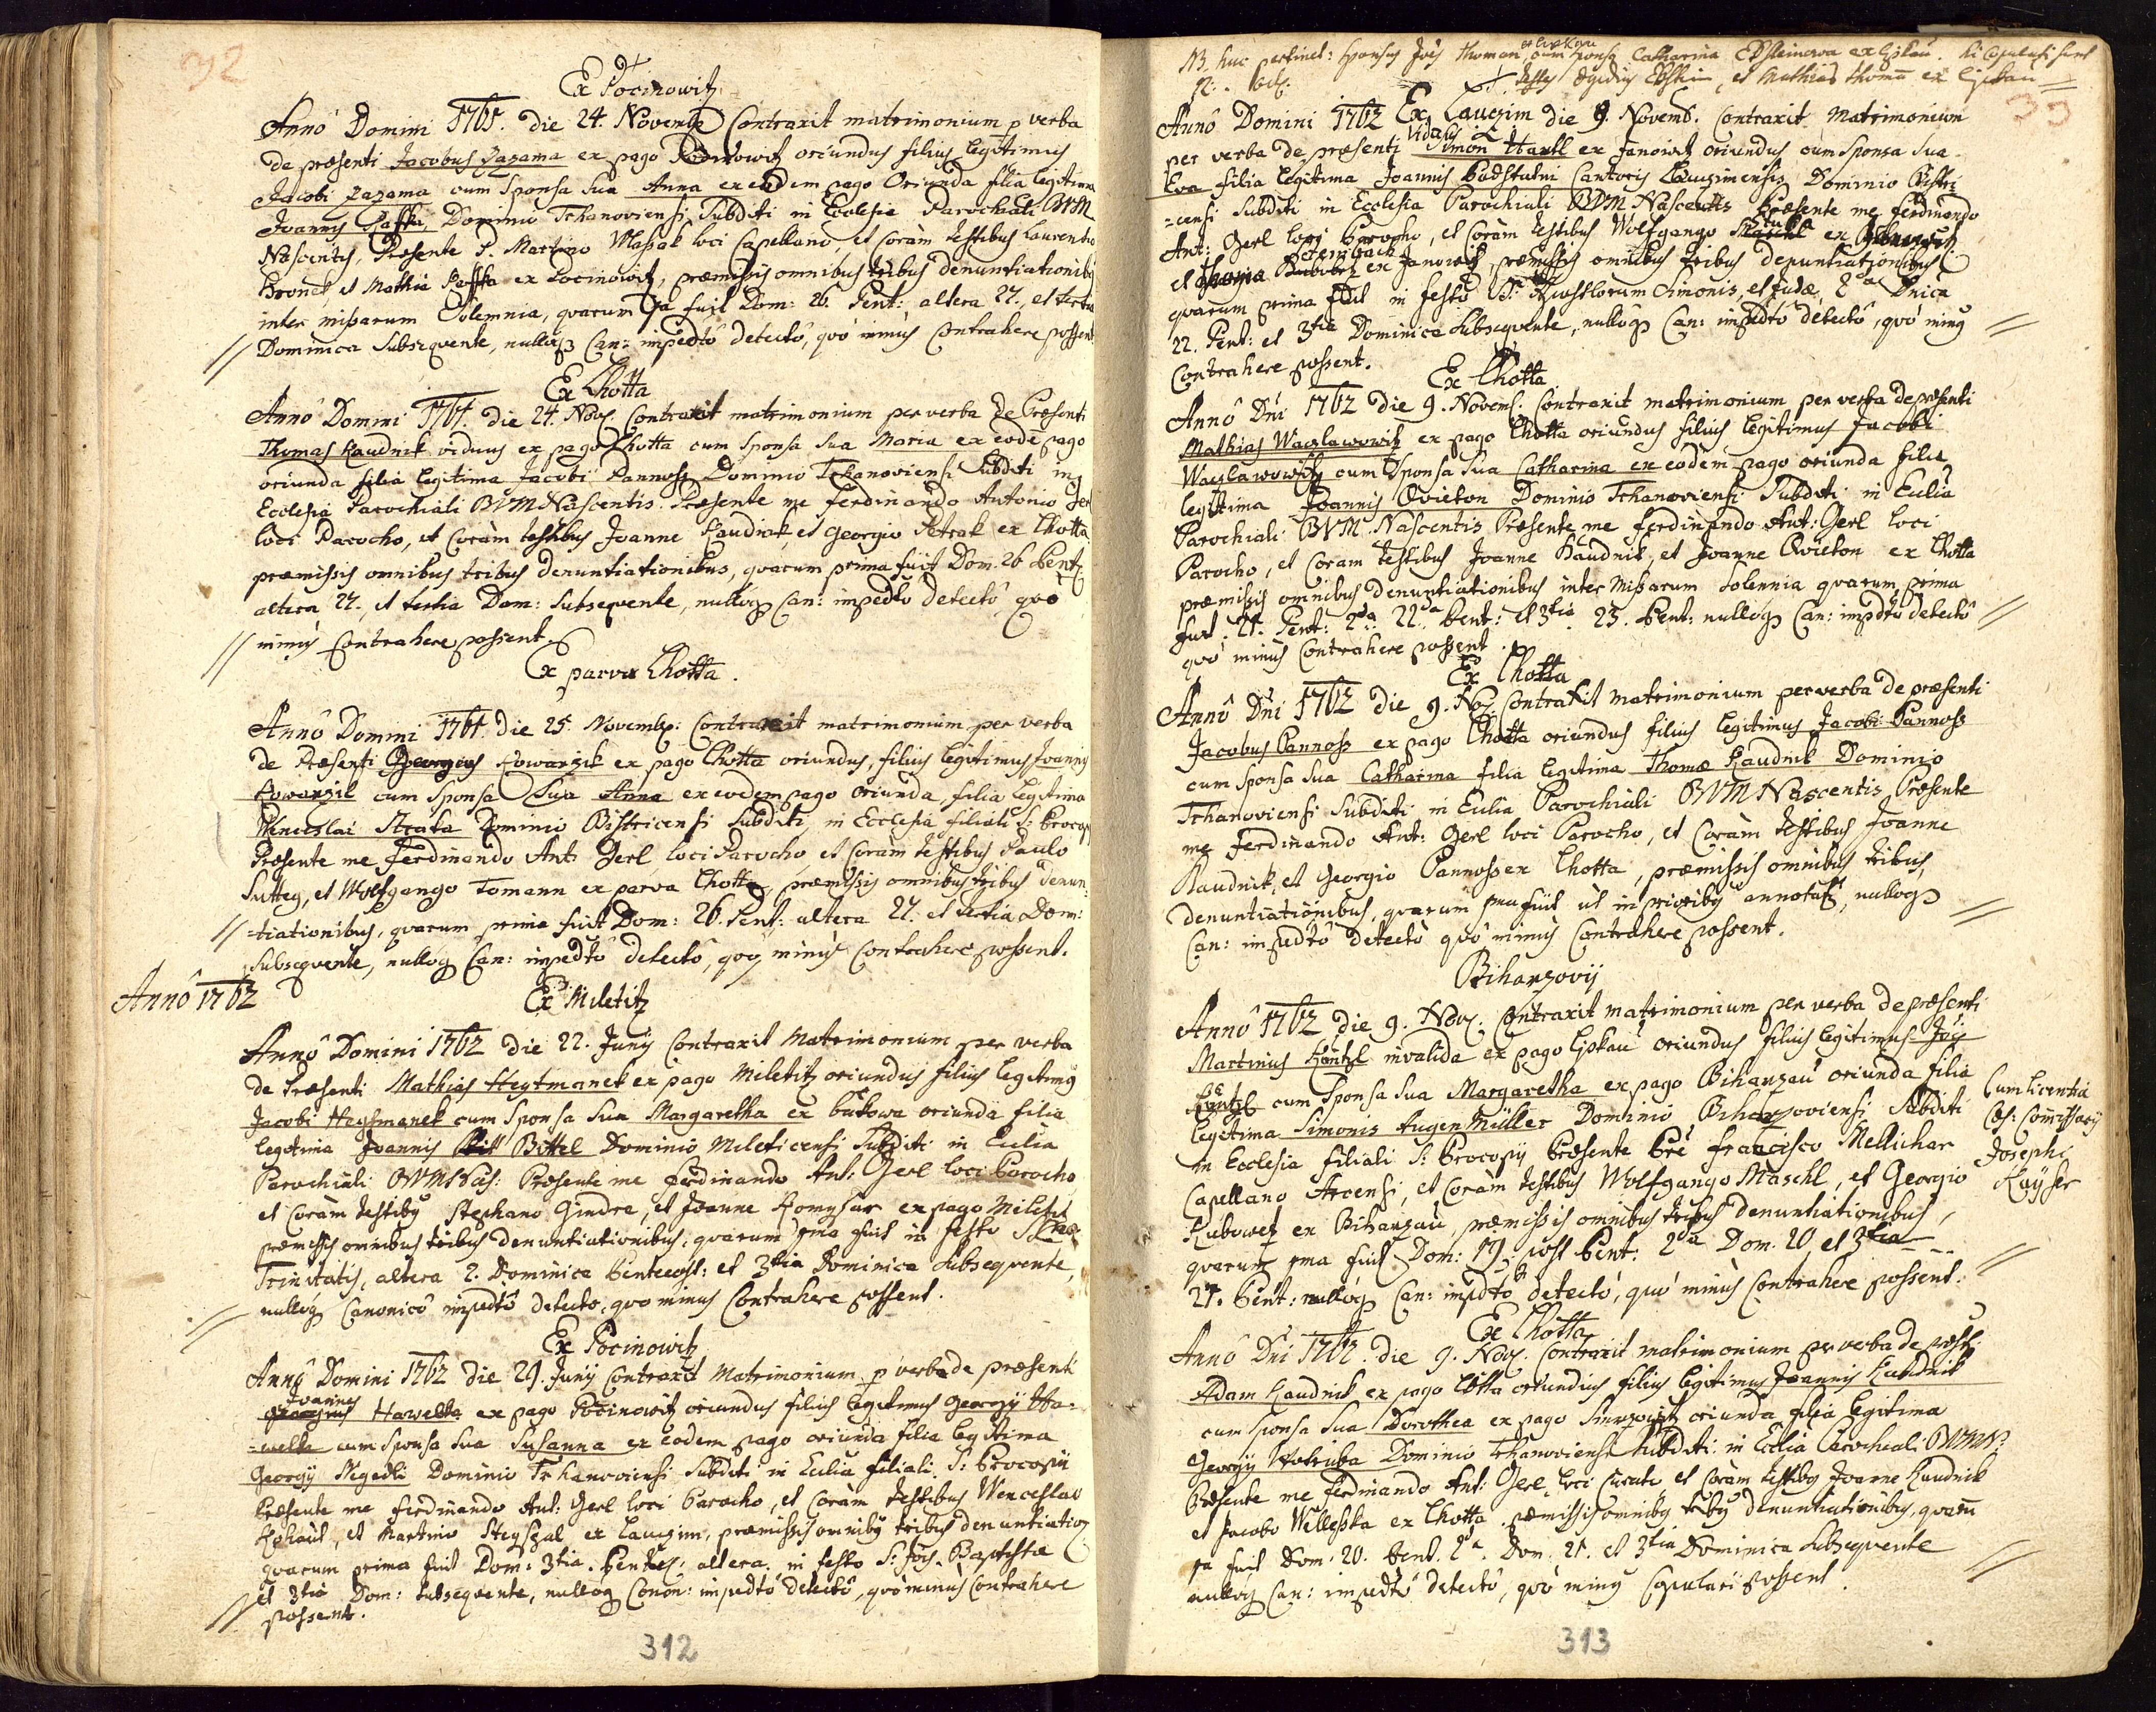 32
Ex Pocinowitz
Annô Domini 1761. die 24. Novembr Contraxit matrimonium p verba
de præsenti Jacobus Zazama ex pago Pocinowitz oriundus filius legitimus
Jacobi Zazama cum Sponsa Sua Anna ex eodem pago Oriunda filia legitima
Joannis Paffka, Dominio Tchanoviensi Subditi in Ecclesia Parochiali BVM
Nascentis, Præsente P. Martino Wlassak loci Capellano et Coràm testibus Laurentio
et Mathia Paffka ex Pocinowitz, præmissis omnibus tribus denuntiationibus
inter missarum Solemnia, qvarum 1ma fuit Dom: 26. Pent: altera 27. et tertia
Dominica Subseqvente, nulloq Can: impedtô detectô, qvò minùs Contrahere possent
Ex Lhotta
Annô Domini 1761. die 24. Nov. Contraxit matrimonium per verba de Præsenti
Thomas Kaudnik viduus ex pago Lhotta cum Sponsa Sua Maria ex eodē pago
oriunda filia legitima Jacobi Pannoss Dominio Tchanoviensi Subditi in
Ecclesia Parochiali BVM Nascentis. Præsente me Ferdinando Antonio Gerl
loci Parocho, et Coràm testibus Joanne Kaudnik, et Georgio Petrak ex Lhotta
præmissis omnibus tribus denuntiationibus, qvarum prima fuit Dom. 26 Pent
altera 27. et tertia Dom: Subseqvente, nulloq Can: impedtô detectô qvò
minùs Contrahere possent
Ex parva Lhotta.
Annô Domini 1761. die 25. Novemb: Contraxit matrimonium per verba
de Præsenti Georgius Kowarzik ex pago Lhotta oriundus, filius legitimus Joannis
Kowarzik cum Sponsa Sua Anna ex eodem pago oriunda, filia legitima
Wenceslai Straka Dominio Bistricensi Subditi, in Ecclesia filiali S: Procopi
Præsente me Ferdinando Ant: Gerl loci Parocho et Coràm testibus Paulo
Sutteg, et Wolfgango Tomann ex parva Lhotta præmissis omnibus tribus denun:
=tiationibus, qvarum prima fuit Dom: 26. Pent: altera 27. et tertia Dom:
Subseqvente, nulloq Can: impedtô detectô, qvò minùs Contrahere possent.
Annô 1762
Ex Miletitz
Annô Domini 1762 die 22. Junij Contraxit Matrimonium per verba
de Præsenti Mathias Heytmanek ex pago Miletitz oriundus filius legitimus
Jacobi Heytmanek cum Sponsa Sua Margaretha ex bukowa oriunda filia
legitima Joannis Bittel Dominio Mileticensi Subditi in Eculia
Parochiali BVM Nas: Præsente me Ferdinando Ant: Gerl loci Parocho
et Coràm testibus Stephano Gindre, et Joanne Komysar ex pago Miletitz
præmissis omnibus tribus denuntiationibus, qvarum 1ma fuit in festo SSmæ
Trinitatis, altera 2. Dominica Pentecost: et 3tia Dominica Subseqvente,
nulloq Canonicô impedtô detecto, qvo minus Contrahere possent.
Ex Pocinowitz
Annô Domini 1762 die 29. Junij Contraxit Matrimonium p verba de præsenti
Joannes
Hawelka ex pago Pocinowitz oriundus filius legitimus Georgij Ha-
=welka cum Sponsa Sua Susanna ex eodem pago oriunda filia legitima
Georgij Megedli Dominio Trhanoviensi Subditi in Eculia filiali S: Procopii
Præsente me Ferdinando Ant: Gerl loci Parocho, et Coràm testibus Wenceslao
et Martino Steyszal ex Lauczim, præmissis omnibus tribus denuntiatio
qvarum prima fuit Dom: 3tia. Pentec: altera, in festo S: Jois Baptistæ
et 3tia Dom: Subseqvente, nulloq Canon: impedtô detectô, qvòminùs Contrahere
possent.
312
NB. huc pertinet: Sponsus Jois Thoman cum Sponsa Catharina Ebsteinova ex Liskau. hi Copulati sunt
Testes Egidius Ebstein, et Mathias Thoma ex Liskau
33
Ex Lauczim
Annô Domini 1762 die 9. Novemb. Contraxit Matrimonium
viduus
per verba de præsenti Simon Hartl ex Janowitz oriundus cum Sponsa Sua
Eva filia legitima Joannis Podstatni Cantoris Lauczimensis Dominio Bistri
=censi Subditi in Ecclesia Parochiali BVM Nascentis Præsente me Ferdinando
Ant: Gerl loci Parocho, et Coràm testibus Wolfgango ex
et Thoma ex Janowitz, præmissis omnibus tribus denuntiationibus
qvarum prima fuit in festo SS: Apostolorum Simonis, et Judæ, 2da Dnica
22. Pent: et 3tia Dominica Subseqvente, nulloq Can: impedtô detectô, qvò minus
Contrahere possent.
Ex Lhotta
Annô Dni 1762 die 9. Novemb: Contraxit matrimonium per verba de præsenti
Mathias Waczlawowitz ex pago Lhotta oriundus filius legitimus Jacobi
Waczlawowitz cum Sponsa Sua Catharina ex eodem pago oriunda filia
legitima Joannis Qvieton Dominio Trhanoviensi Subditi in Eculia
Parochiali BVM Nascentis Præsente me Ferdinando Ant: Gerl loci
Parocho, et Coram testibus Joanne Kaudnik, et Joanne Qvieton ex Lhotta
præmissis omnibus denuntiationibus inter Missarum Solennia qvarum prima
fuit 21. Pent: 2da 22da Pent: et 3tia 23. Pent: nulloq Can: impdtô detectô
qvò minùs Contrahere possent.
Ex Lhotta
Annô Dni 1762 die 9. Nov. Contraxit matrimonium per verba de præsenti
Jacobus Pannoss ex pago Lhotta oriundus filius legitimus Jacobi Pannoss
cum Sponsa Sua Catharina filia legitima Thomæ Kaudnik Dominio
Tchanoviensi Subditi in Eculia Parochiali BVM Nascentis Præsente
me Ferdinando Ant: Gerl loci Parocho, et Coràm testibus Joanne
Kaudnik, et Georgio Pannoss ex Lhotta, præmissis omnibus tribus,
denuntiationibus, qvarum pma fuit ut in prioribus annotatz, nulloq
Can: impedtô detectò qvò minùs Contrahere possent.
Biharzovij
Annô 1762 die 9. Nov. Contraxit matrimonium per verba de præsenti
Martinus Küntzl invalida ex pago Liskau oriundus filius legitimus Jois
Küntzl cum Sponsa Sua Margaretha ex pago Biharzau oriunda filia
legitima Simonis Augenmüller Dominio Biharzoviensi Subditi
in Ecclesia filiali S: Procopij Præsente Pre Francisco Mellichar
Capellano Arcensi, et Coràm testibus Wolfgango Maschl, et Georgio
Kubowetz ex Biharzau, præmissis omnibus tribus denuntiationibus,
qvarum pma fuit Dom: 19. post Pent: 2da Dom. 20, et 3tia
21. Pent: nulloq Can: impdtô detectô, qvò minùs Contrahere possent.
Cum licentia
Cæs: Com̄issarij
Josephi
Kayser
Ex Lhotta
Annô Dni 1762. die 9. Nov. Contraxit matrimonium per verba de præsti
Adam Kaudnik ex pago Lhotta oriundus filius legitimus Joannis Kaudnik
cum Sponsa Sua Dorothea ex pago oriunda filia legitima
Georgij Kotriba Dominio Trhanoviensi Subditi in Ecclia Parochiali BVMN
Præsente me Ferdinando Ant: Gerl loci Curato, et Coràm testibus Joanne Kaudnik
et Jacobo Wellesska ex Lhotta. præmissis omnibus tribus denuntiationibus, qvarū
1a fuit Dom: 20. Pent. 2da. Dom. 21. et 3tia Dominica Subseqvente
nulloq Can: impedtô detectô, qvò minus Copulari possent.
313